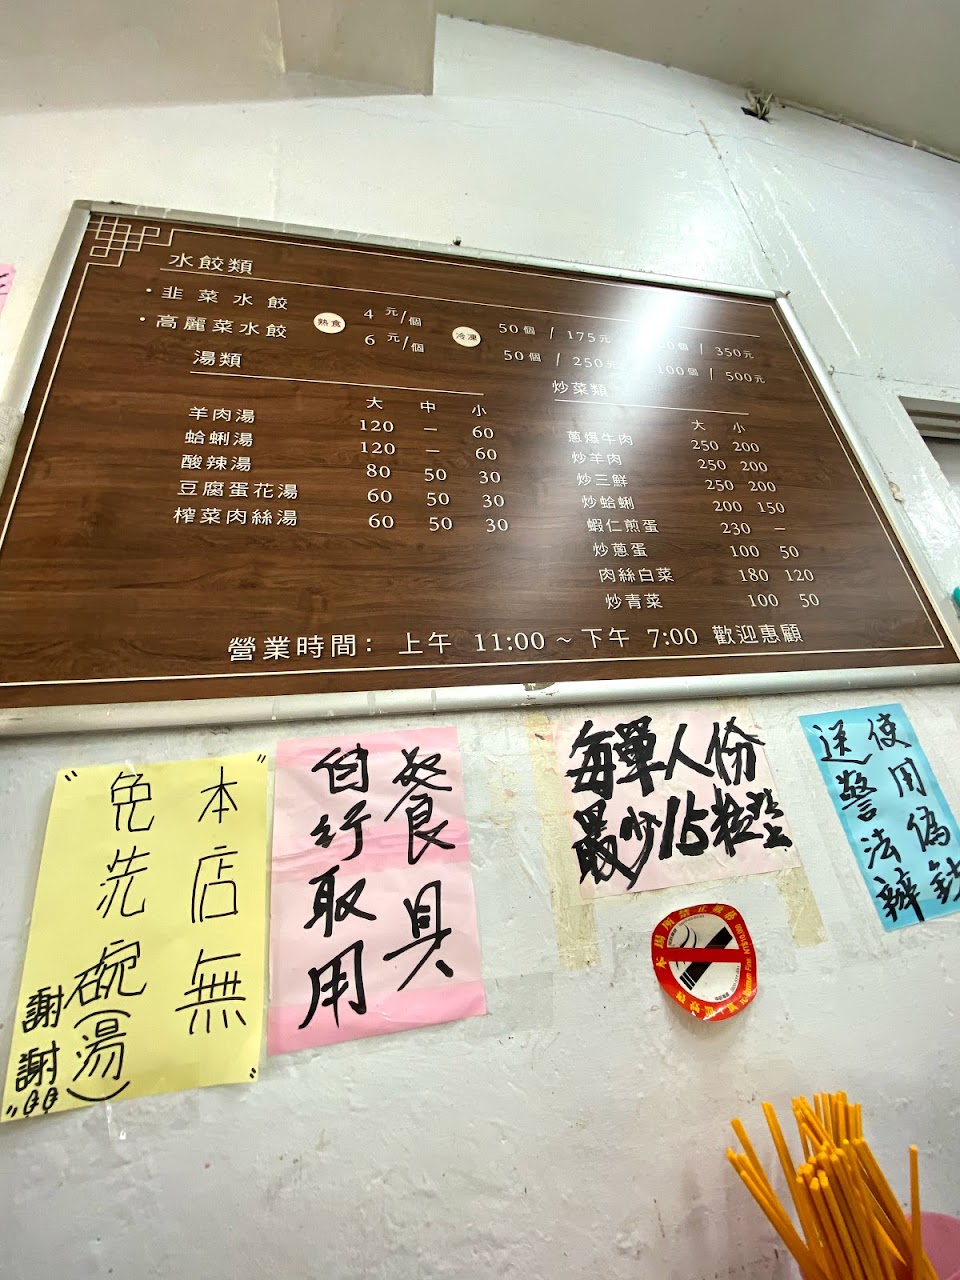 水餃類
·韭菜水餃 熟食 4元/個 冷凍 50個 / 175元 / 350元
·高麗菜水餃 6元/個 50個 / 250元 100個 / 500元
湯類
大 中 小
羊肉湯 120 — 60
蛤蜊湯 120 — 60
酸辣湯 80 50 30
豆腐蛋花湯 60 50 30
榨菜肉絲湯 60 50 30
炒菜類
大 小
蔥爆牛肉 250 200
炒羊肉 250 200
炒三鮮 250 200
炒蛤蜊 200 150
蝦仁煎蛋 230 —
炒蔥蛋 100 50
肉絲白菜 180 120
炒青菜 100 50
營業時間： 上午 11:00 ~ 下午 7:00 歡迎惠顧
"本店無
免洗碗(湯)
謝謝"
餐具
自行取用
每單人份
最少15粒
使用偽
送警法辦
本場所禁止吸菸